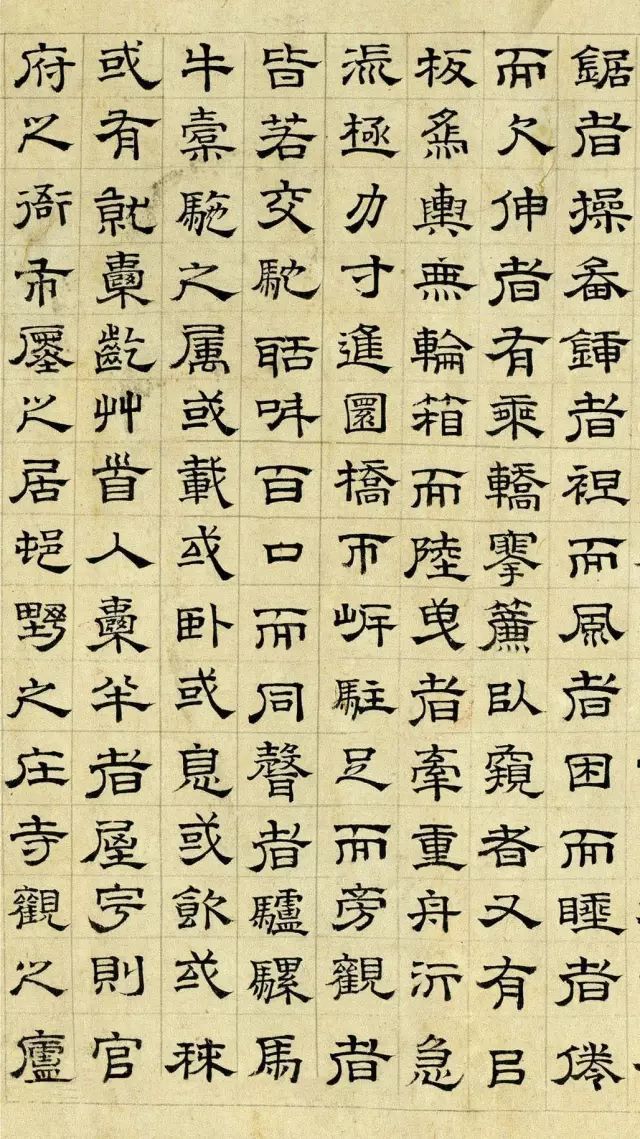 鋸者操畚鍤者袒而風者困而睡者倦
而欠伸者有乘轎搴簾以窺者又有以
板為輿無輪箱而陸曳者牽重舟泝急
流極力寸進圜橋匝岸駐足而旁觀者
皆若交馳聒叫百口而同聲者驢騾馬
牛橐駞之属或載或卧或息或飲或秣
或有就囊齕艸首入囊半者屋宇則官
府之衙市廛之居邨野之庄寺觀之廬